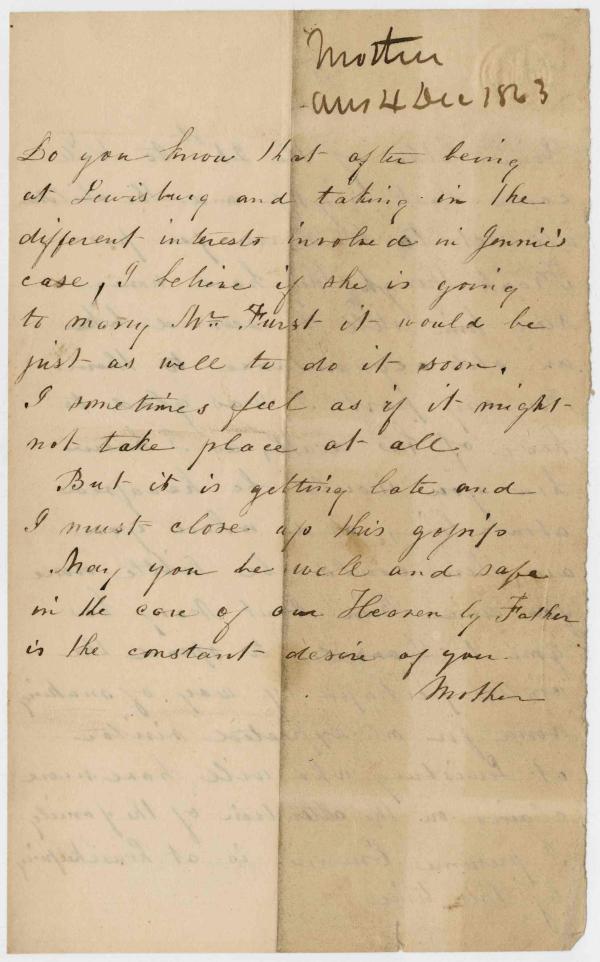 Mother
ans 4 Dec 1863
Do you know that after being
at Lewisburg and taking in the
different interests involved in Jennie's
case, I believe if she is going
to marry Mr. Furst it would be
just as well to do it soon.
I sometimes feel as if it might
not take place at all.
But it is getting late and
I must close up this gossip
May you be well and safe
in the care of our Heavenly Father
is the constant desire of your
Mother